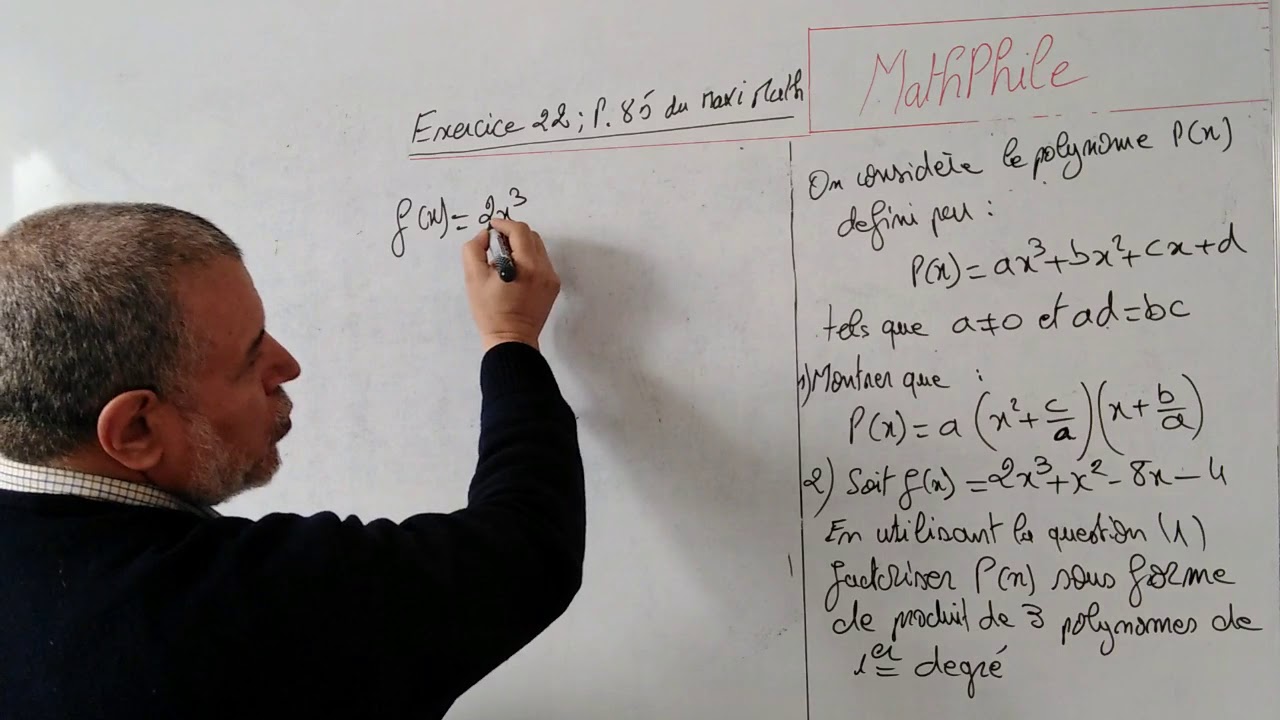 MathPhile
Exercice 22 ; P. 85 du Maxi Math
f(x) = 2x³
On considère le polynome P(x)
defini par :
P(x) = ax³ + bx² + cx + d
tels que a ≠ 0 et ad = bc
1) Montrer que :
P(x) = a (x² + c/a)(x + b/a)
2) Soit f(x) = 2x³ + x² - 8x - 4
En utilisant la question (1)
factoriser P(x) sous forme
de produit de 3 polynomes de
1er degré